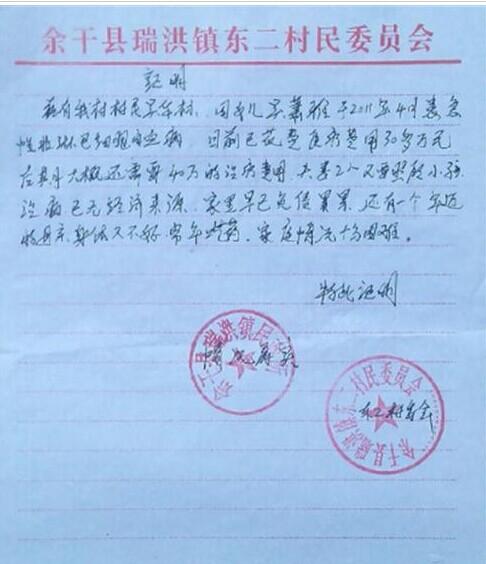 余干县瑞洪镇东二村民委员会
证明
兹有我村村民 因 儿子 于2011年4月患急
性淋巴细胞白血病 目前已花费医疗费用30多万元
后期大概还需要40万的治疗费用 夫妻2个人要照顾小孩
治病已无经济来源 家里早已负债累累 还有一个年迈
的母亲 身体又不好 常年吃药 家庭情况十分困难。
特此证明
情况属实
余干县瑞洪镇民
东二村委会
余干县瑞洪镇东二村民委员会